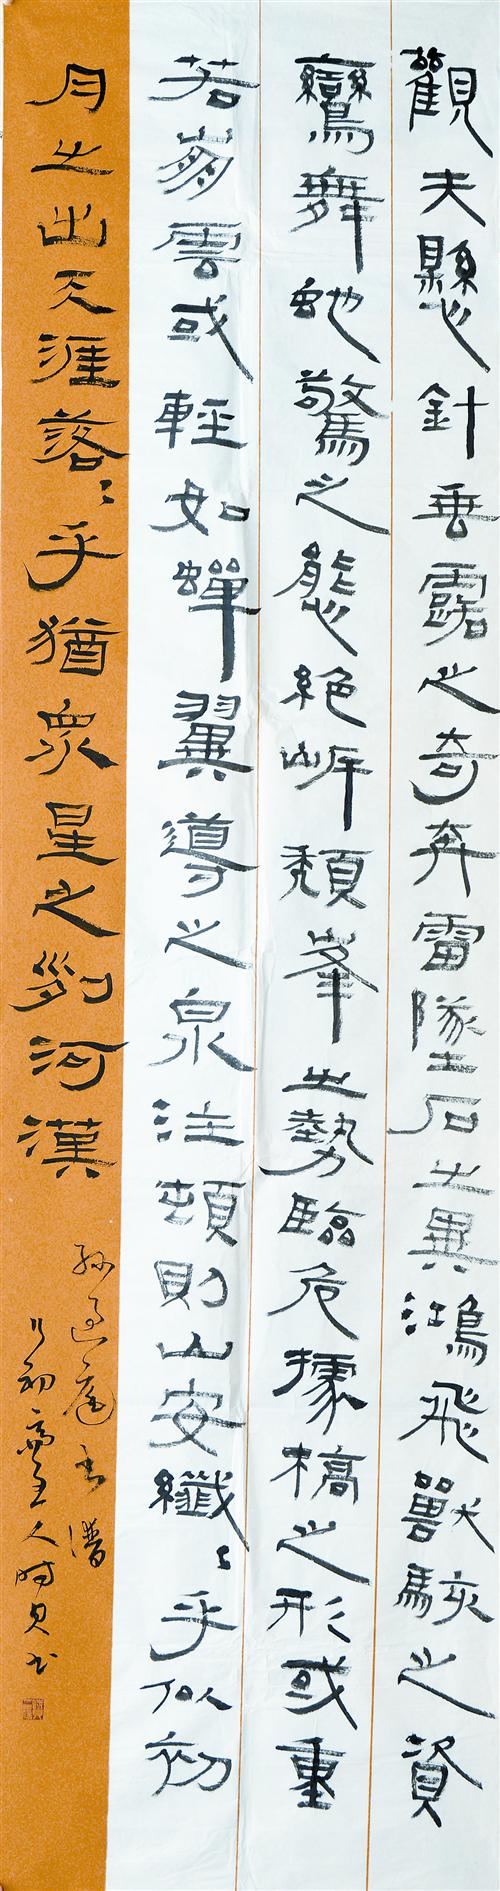 觀夫懸針垂露之奇奔雷墜石之異鴻飛獸駭之資
鸞舞虵驚之態絕岸頹峯之勢臨危據槁之形或重
若崩雲或輕如蟬翼導之泉注頓則山安纖〻乎似初
月之出天涯落〻乎猶眾星之列河漢
孫過庭書譜
初齋主人